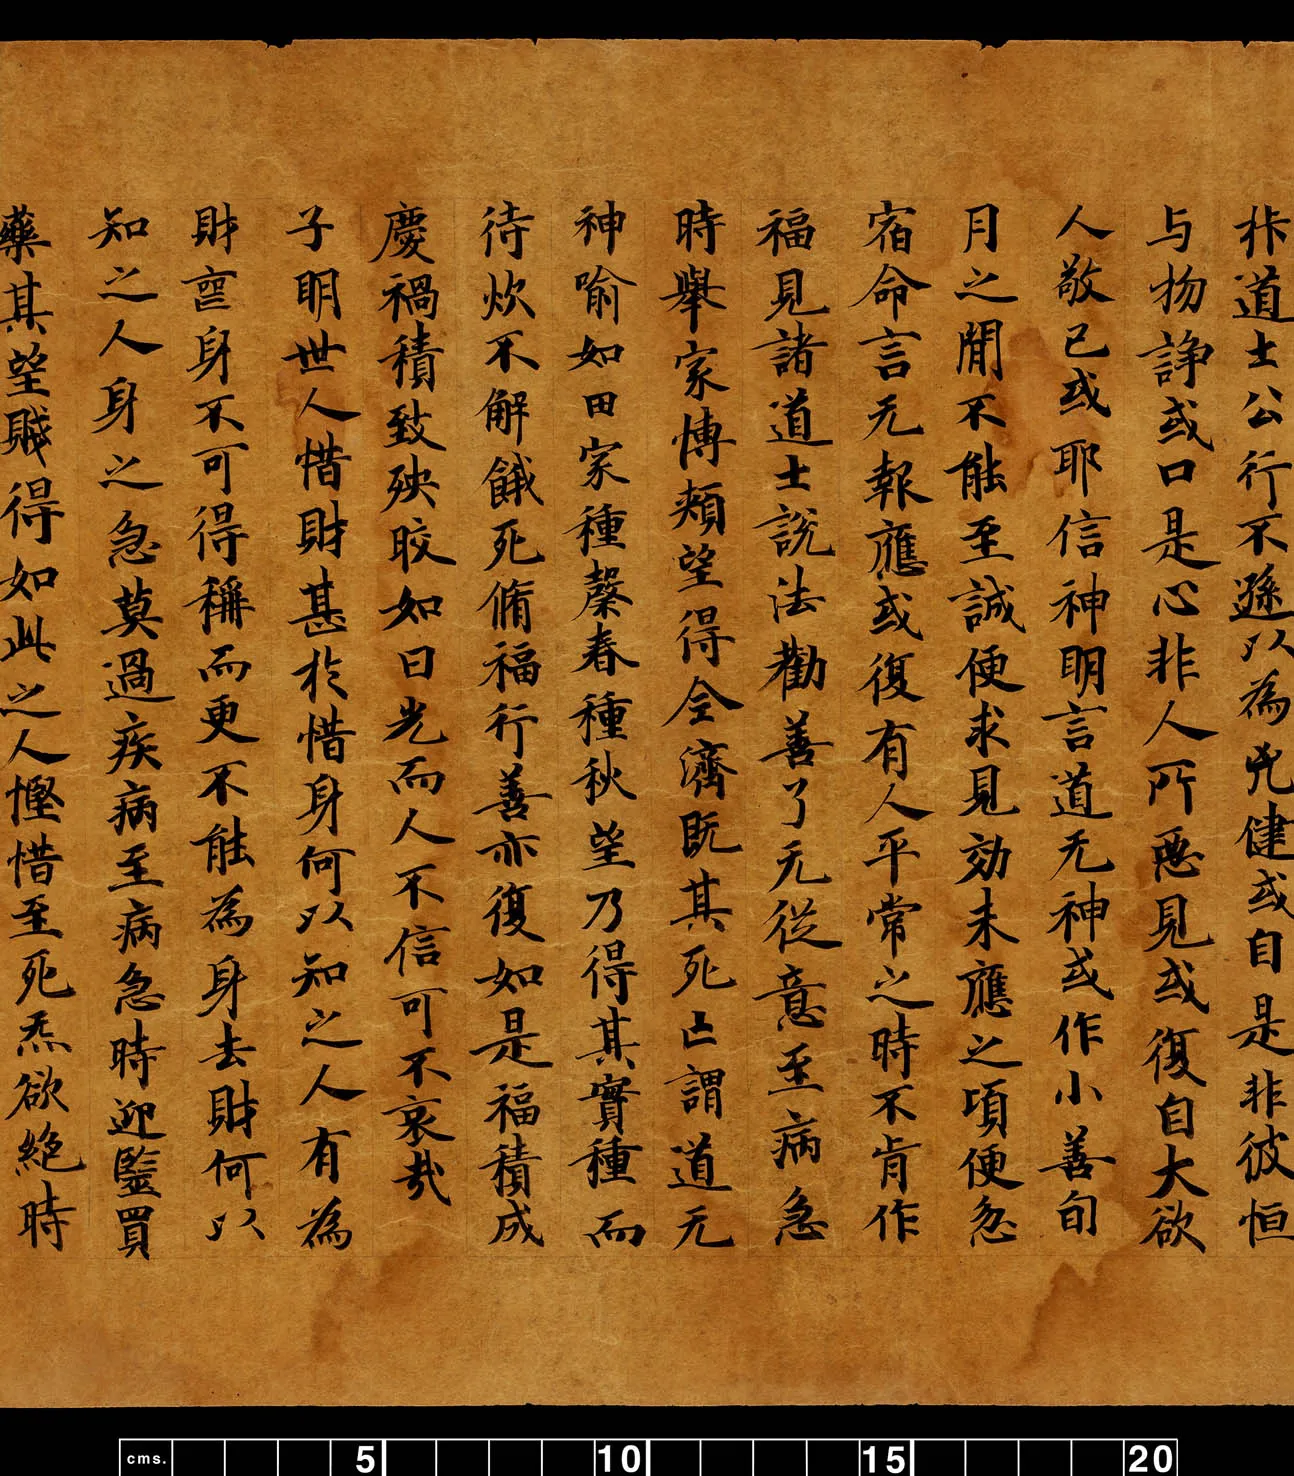 道士公行不遜以為光健或自是非彼恒
与物諍或口是心非人所惡見或復自大欲
人敬己或耶信神明言道无神或作小善旬
月之間不能至誠便求見効未應之頃便忽
宿命言无報應或復有人平常之時不肯作
福見諸道士說法勸善了无從意至病急
時舉家愽頰望得全濟既其死亡謂道无
神喻如田家種春種秋望乃得其實種而
待炊不解餓死脩福行善亦復如是福積成
慶禍積致殃皎如日光而人不信可不哀哉
子明世人惜財甚於惜身何以知之人有為
財喪身不可得稱而更不能為身去財何以
知之人身之急莫過疾病至病急時迎毉買
藥其望賤得如此之人慳惜至死炁欲絕時